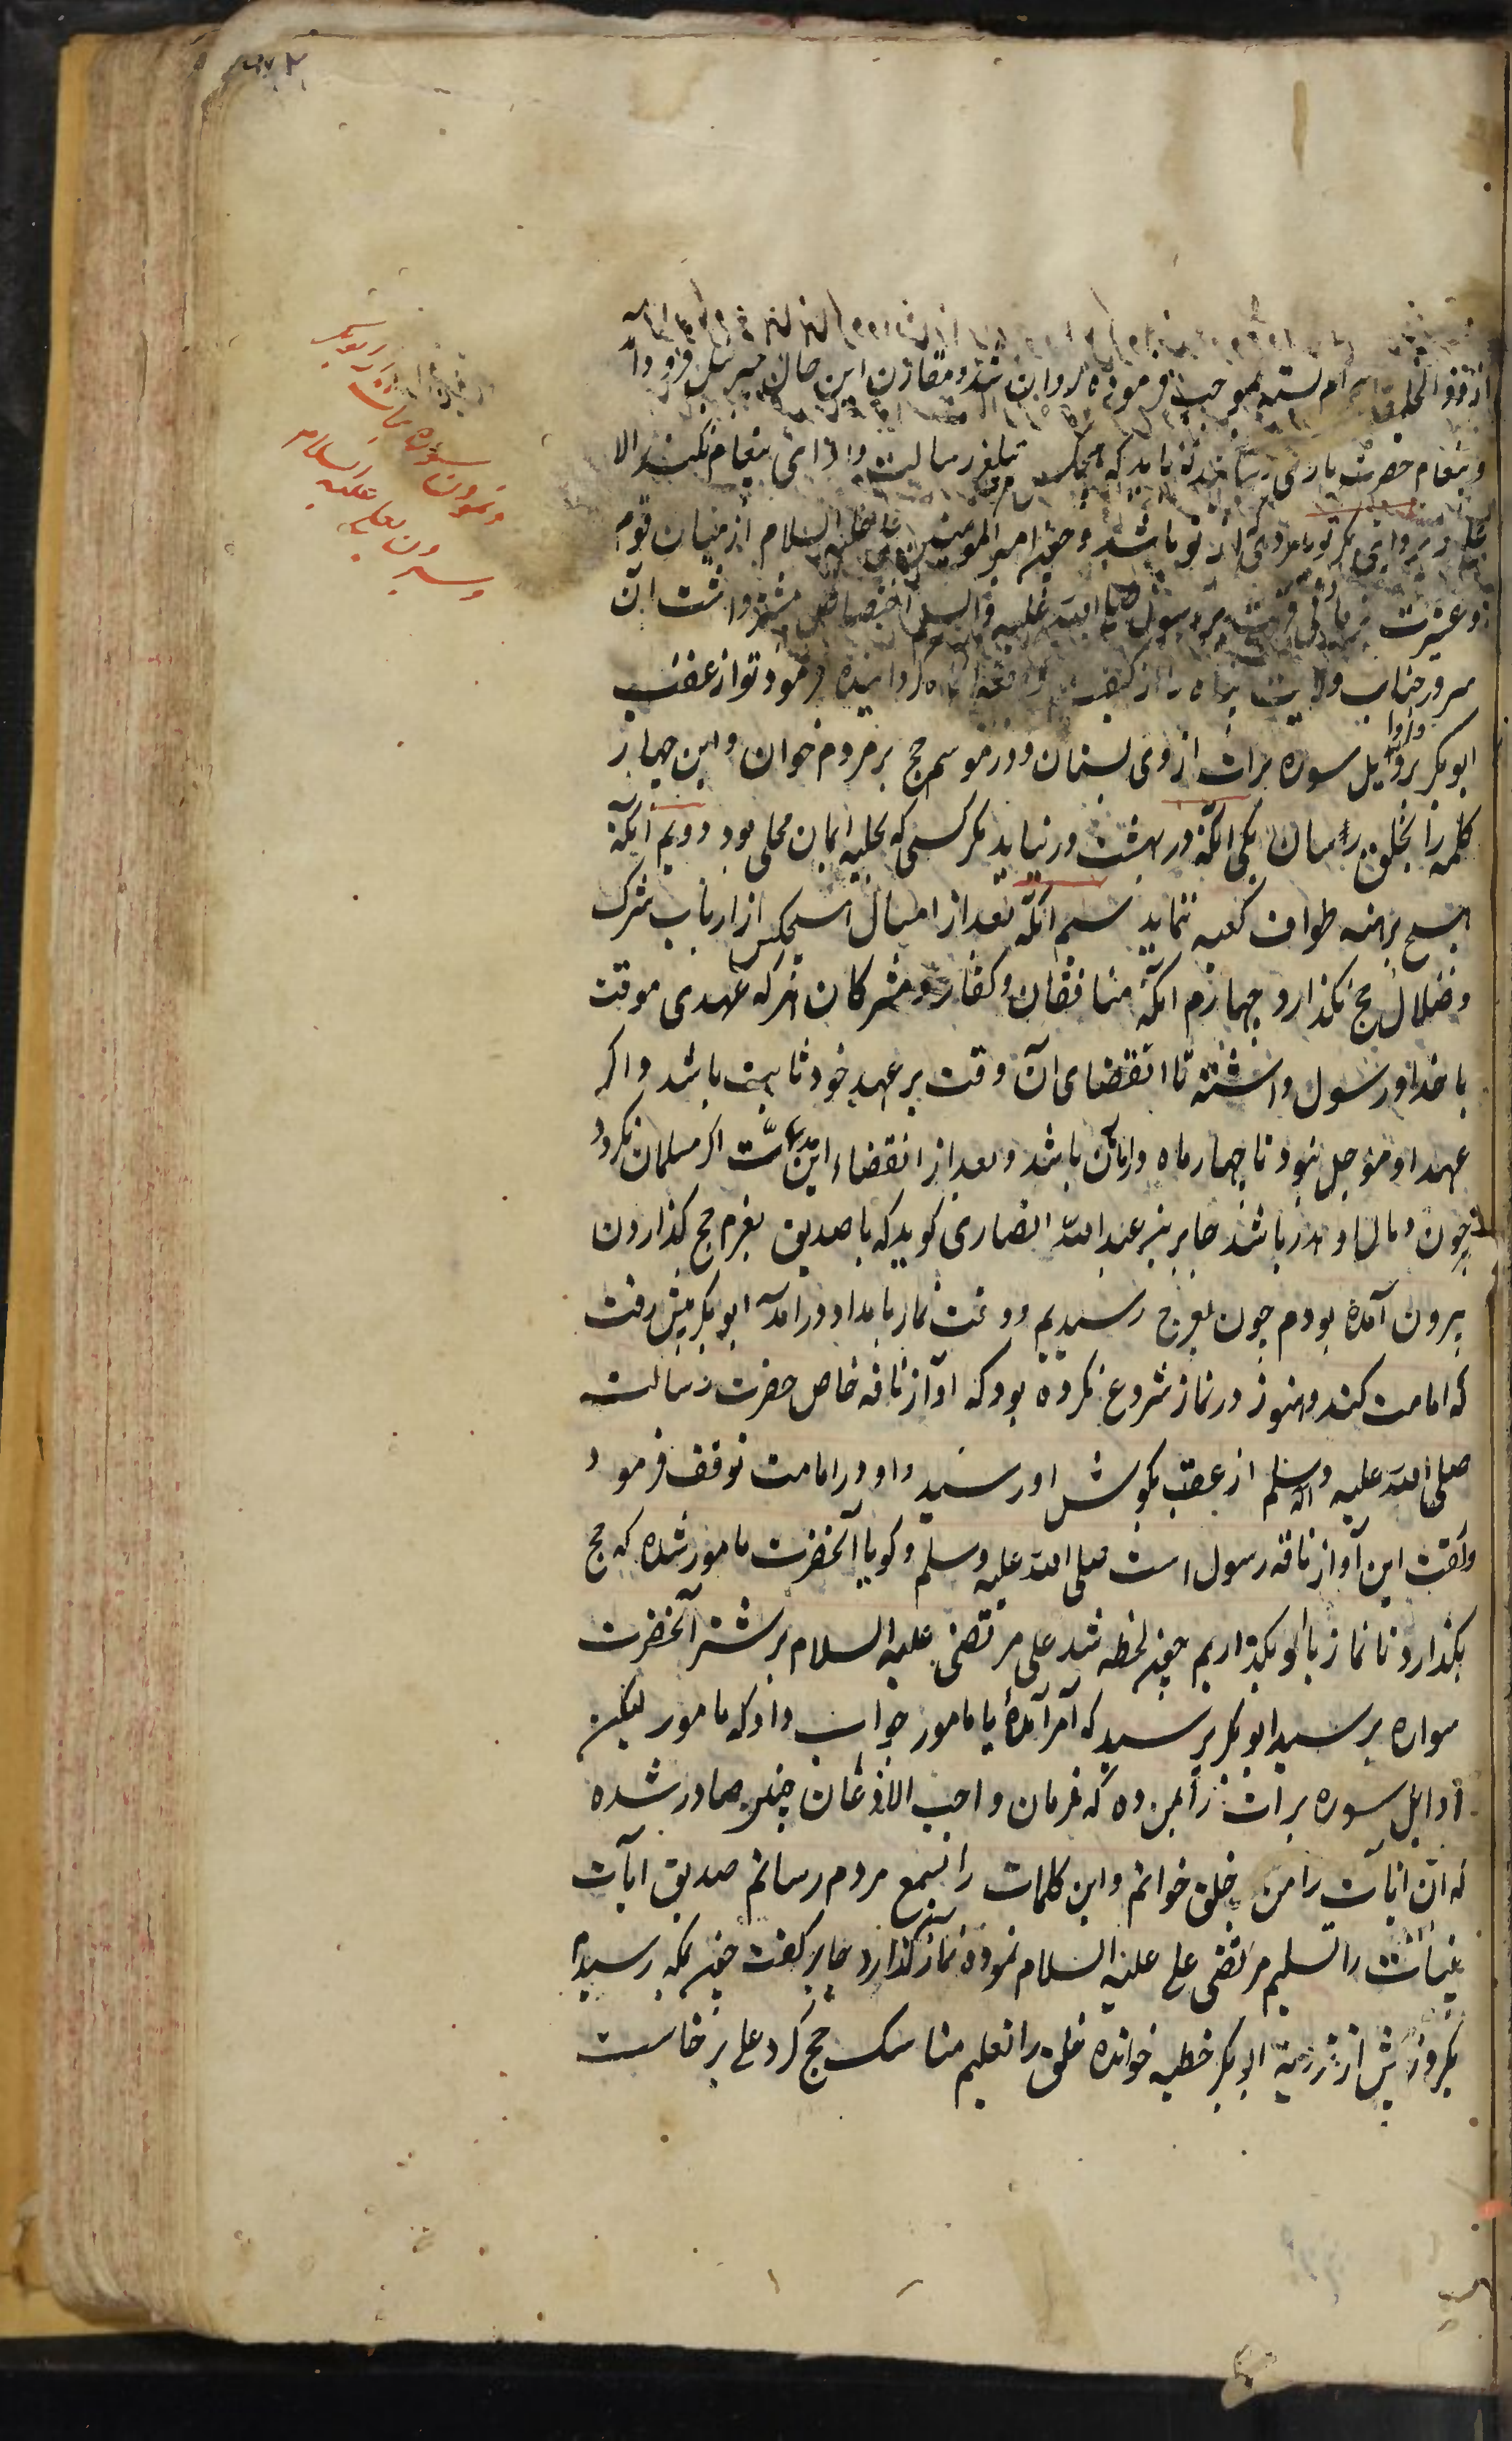 از ذوالحلیفه احرام بسته بموجب فرموده روان شد و مقارن این حال جبرئیل فرود آمد
و پیغام حضرت باری رسانید که باید که هیچکس تبلیغ رسالت و ادای پیغام نکند الا
علی و بروایتی مگر تو یا مردی که از تو باشد و چون امیر المومنین علی علیه السلام از میان قوم
و عشیرت بزیادتی قربت رسول صلی الله علیه و آله وسلم اختصاص داشت آن
سرور جناب ولایت پناه را از کیفیت واقعه آگاه گردانیده فرمود تو از عقب
ابوبکر برو و اوایل سوره برات از وی بستان و در موسم حج بر مردم خوان و این چهار
کلمه را بخلق رسان یکی آنکه در بهشت در نیاید مگر کسی که بحلیه ایمان محلی بود دویم آنکه
هیچ برهنه طواف کعبه ننماید سیم آنکه بعد از امسال هیچکس از ارباب شرک
و ضلال حج نگذارد چهارم آنکه منافقان و کفار و مشرکان هر که عهدی موقت
با خدا و رسول داشته تا انقضای آن وقت بر عهد خود ثابت باشد و اگر
عهد او مؤجل نبود تا چهار ماه در امان باشد و بعد از انقضاء این مدت اگر مسلمان نگردد
خون و مال او هدر باشد جابر بن عبد الله انصاری گوید که با صدیق بعزم حج گذاردن
بیرون آمده بودم چون بعرج رسیدیم و وقت نماز بامداد در آمد ابوبکر پیش رفت
که امامت کند و هنوز در نماز شروع نکرده بود که آواز ناقه خاص حضرت رسالت
صلی الله علیه و اله وسلم از عقب بگوش او رسید و او در امامت توقف فرمود
و گفت این آواز ناقه رسول است صلی الله علیه وسلم و گویا آنحضرت مامور شده که حج
بگذارد تا نماز با او بگذاریم چون لحظه شد علی مرتضی علیه السلام بر شتر آنحضرت
سواره برسید ابوبکر پرسید که آمر آمدۀ یا مامور جواب داد که مامور لیکن
اوایل سوره برات را بمن ده که فرمان واجب الاذعان چنین صادر شده
که آن ایات را من بخلق خوانم و این کلمات را بسمع مردم رسانم صدیق آیات
بینات را تسلیم مرتضی علی علیه السلام نموده نماز گذارد جابر گفت چون بمکه رسیدیم
یکروز پیش از ترویه ابوبکر خطبه خوانده خلق را تعلیم مناسک حج کرد علی برخاست
ابوبکر
سوره برات
و نمودن
علیه السلام
بعلی
و سپردن